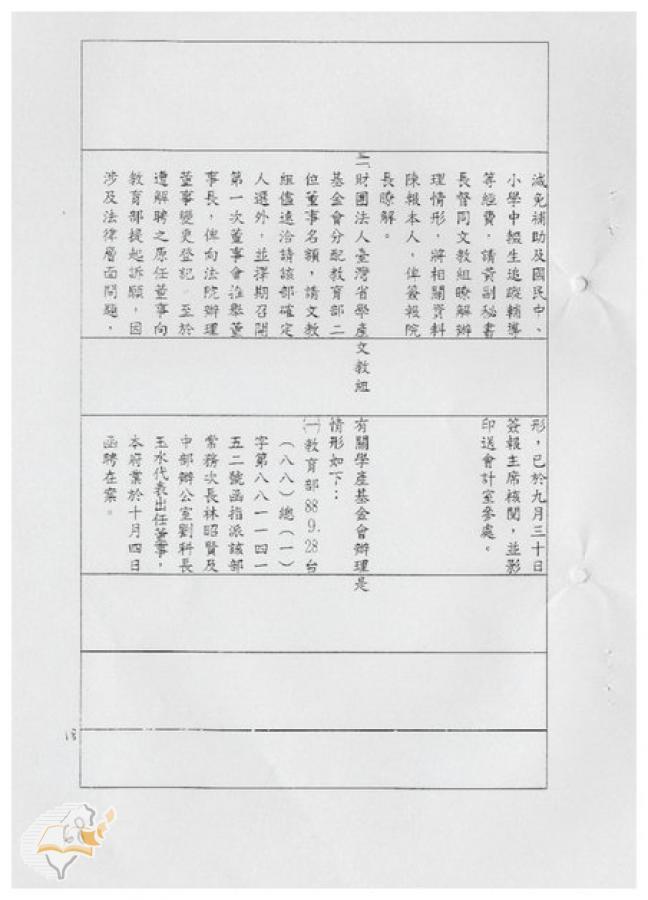 減免補助及國民中、
小學中輟生追蹤輔導
等經費,請黃副秘書
長督同文教組瞭解辦
理情形,將相關資料
陳報本人,俾簽報院
長瞭解。
二、財團法人臺灣省學產
基金會分配教育部二
位董事名額,請文教
組儘速洽請該部確定
人選外,並擇期召開
第一次董事會推舉董
事長,俾向法院辦理
董事變更登記。至於
遭解聘之原任董事向
教育部提起訴願,因
涉及法律層面問題,
文教組
形,已於九月三十日
簽報主席核閱,並影
印送會計室參處。
有關學產基金會辦理是
情形如下:
㈠教育部88.9.28台
(八八)總(一)
字第八八一一四一
五二號函指派該部
常務次長林昭賢及
中部辦公室劉科長
玉水代表出任董事,
本府業於十月四日
函聘在案。
18
68